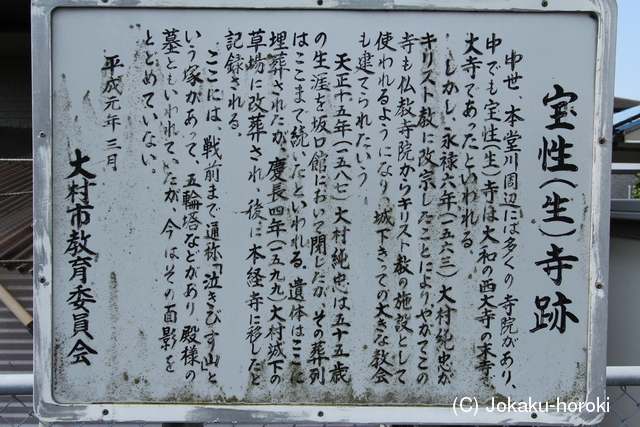 宝性(生)寺跡
中世、本堂川周辺には多くの寺院があり、
中でも宝性(生)寺は大和の西大寺の末寺、
大寺であったといわれる。
しかし、永禄六年(一五六三)大村純忠が
キリスト教に改宗したことによりやがてこの
寺も仏教寺院からキリスト教の施設として
使われるようになり、城下きっての大きな教会
も建てられたという
天正十五年(一五八七)大村純忠は五十五歳
の生涯を坂口館において閉じたが、その葬列
はここまで続いたといわれる。遺体はここに
埋葬されたが、慶長四年(一五九九)大村城下の
草場に改葬され、後に本経寺に移したと
記録される。
ここには、戦前まで通称「泣きびす山」と
いう塚があって、五輪塔などがあり、殿様の
墓ともいわれていたが、今はその面影を
とどめていない。
平成元年三月
大村市教育委員会
(C) Jokaku-horoki